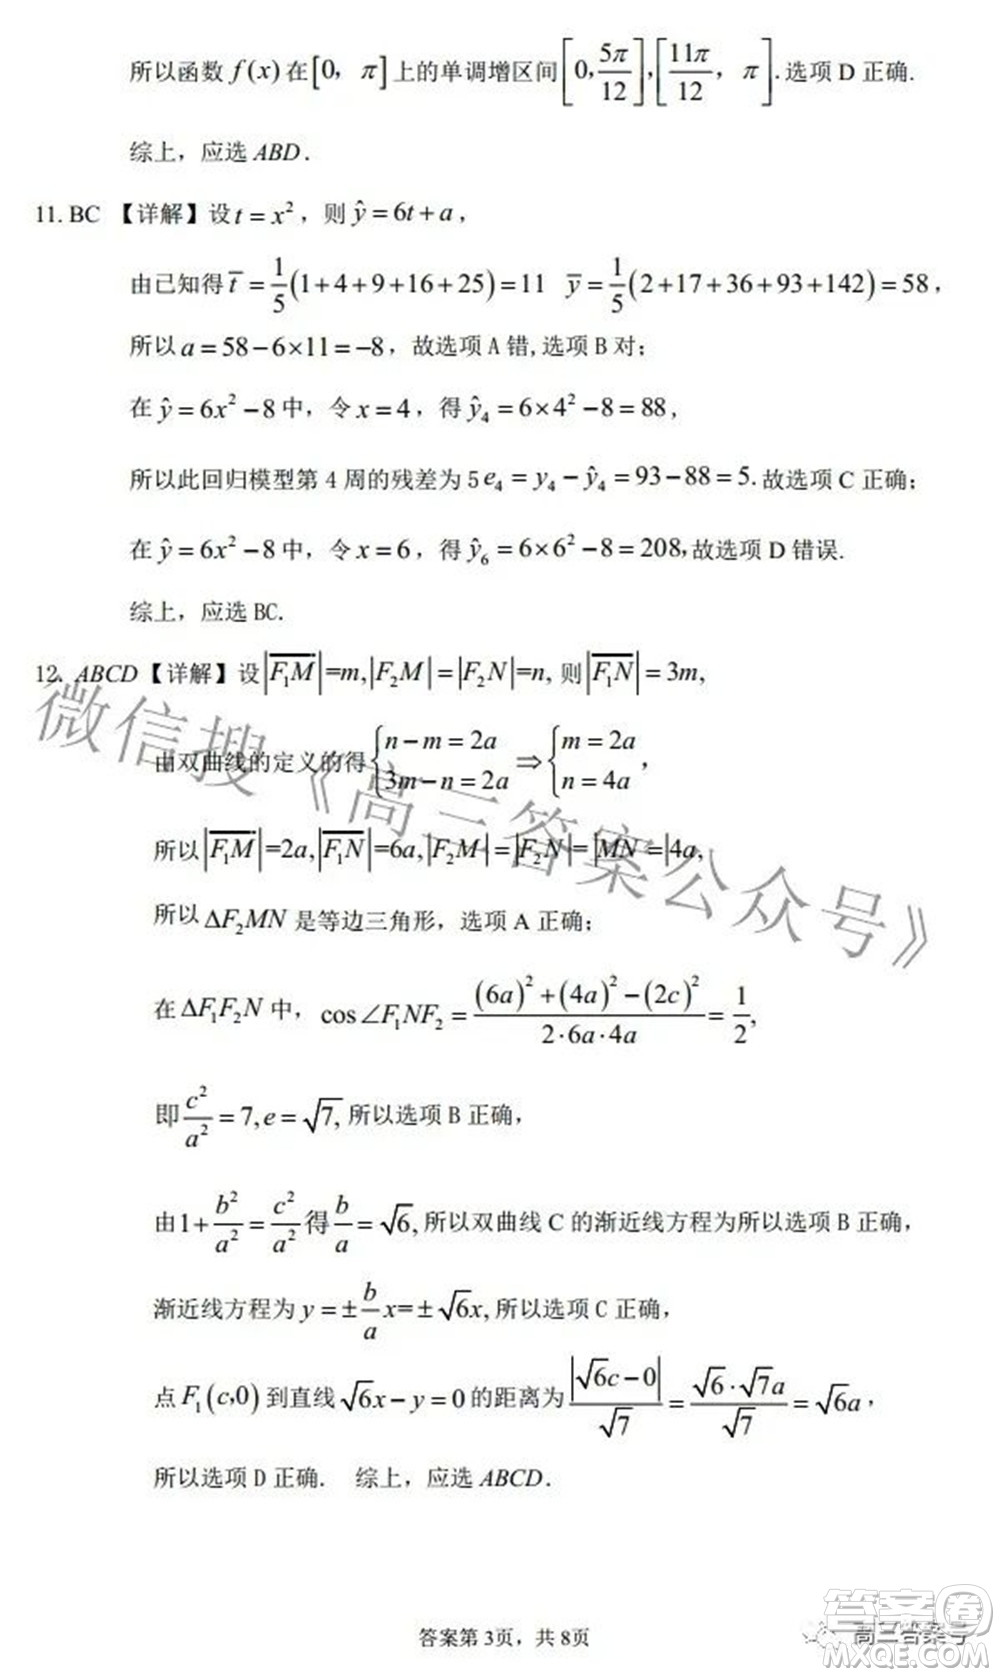 所以函数 f(x) 在 [0, π] 上的单调增区间 [0, 5π/12], [11π/12, π]. 选项 D 正确.
综上，应选 ABD.
11. BC 【详解】设 t = x²，则 ŷ = 6t + a，
由已知得 t̅ = 1/5(1+4+9+16+25) = 11 y̅ = 1/5(2+17+36+93+142) = 58，
所以 a = 58 − 6×11 = −8，故选项 A 错,选项 B 对；
在 ŷ = 6x² − 8 中，令 x = 4，得 ŷ₄ = 6×4² − 8 = 88，
所以此回归模型第 4 周的残差为 5 e₄ = y₄ − ŷ₄ = 93 − 88 = 5. 故选项 C 正确；
在 ŷ = 6x² − 8 中，令 x = 6，得 ŷ₆ = 6×6² − 8 = 208, 故选项 D 错误.
综上，应选 BC.
12. ABCD【详解】设 |F₁M| = m, |F₂M| = |F₂N| = n, 则 |F₁N| = 3m,
由双曲线的定义的得 { n − m = 2a 3m − n = 2a ⇒ { m = 2a n = 4a ，
所以 |F₁M| = 2a, |F₁N| = 6a, |F₂M| = |F₂N| = |MN = |4a,
所以 ΔF₂MN 是等边三角形，选项 A 正确；
在 ΔF₁F₂N 中，cos∠F₁NF₂ = ((6a)² + (4a)² − (2c)²)/(2·6a·4a) = 1/2,
即 c²/a² = 7, e = √7, 所以选项 B 正确，
由 1 + b²/a² = c²/a² 得 b/a = √6, 所以双曲线 C 的渐近线方程为所以选项 B 正确，
渐近线方程为 y = ± b/a x = ±√6x, 所以选项 C 正确，
点 F₁(c,0) 到直线 √6x − y = 0 的距离为 |√6c − 0|/√7 = √6·√7a/√7 = √6a，
所以选项 D 正确. 综上，应选 ABCD.
微信搜《高三答案公众号》
答案第 3页，共 8页
高三答案号
答案圈
MXQE.COM